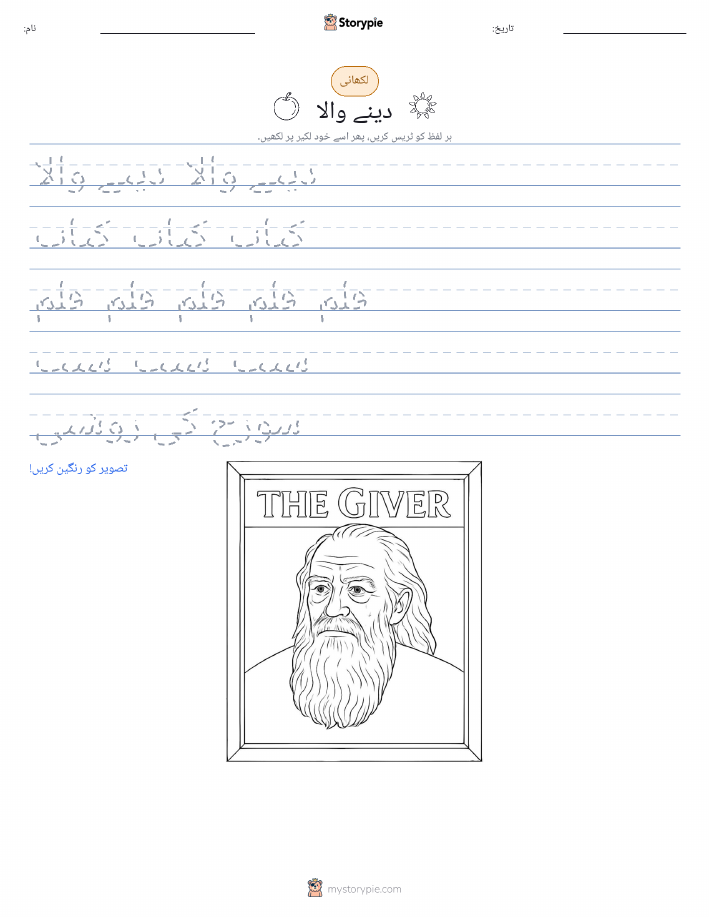 نام:
Storypie
تاریخ:
لکھائی
دینے والا
ہر لفظ کو ٹریس کریں، پھر اسے خود لکیر پر لکھیں۔
دینے والا دینے والا
کتاب کتاب کتاب
قلم قلم قلم قلم قلم
سیب سیب سیب
سورج کی روشنی
تصویر کو رنگین کریں!
THE GIVER
mystorypie.com